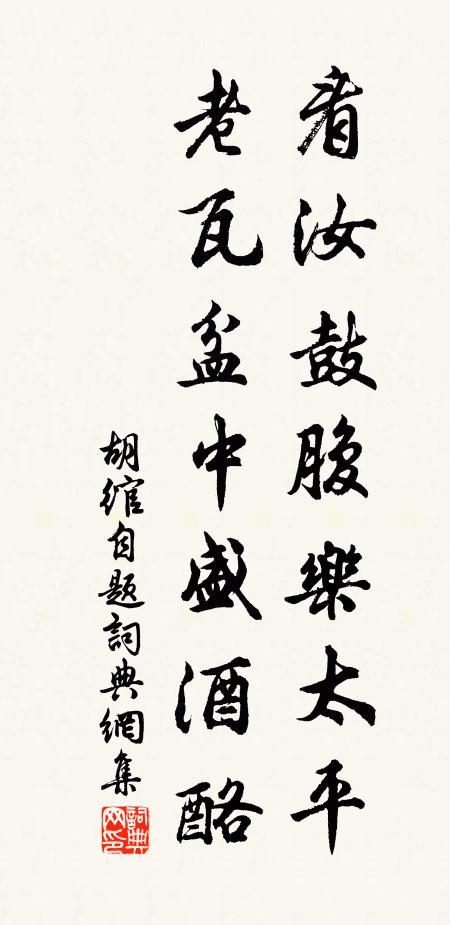 看汝鼓腹樂太平
老瓦盆中盛酒酪
胡綰自題詞典網集
詞典网印